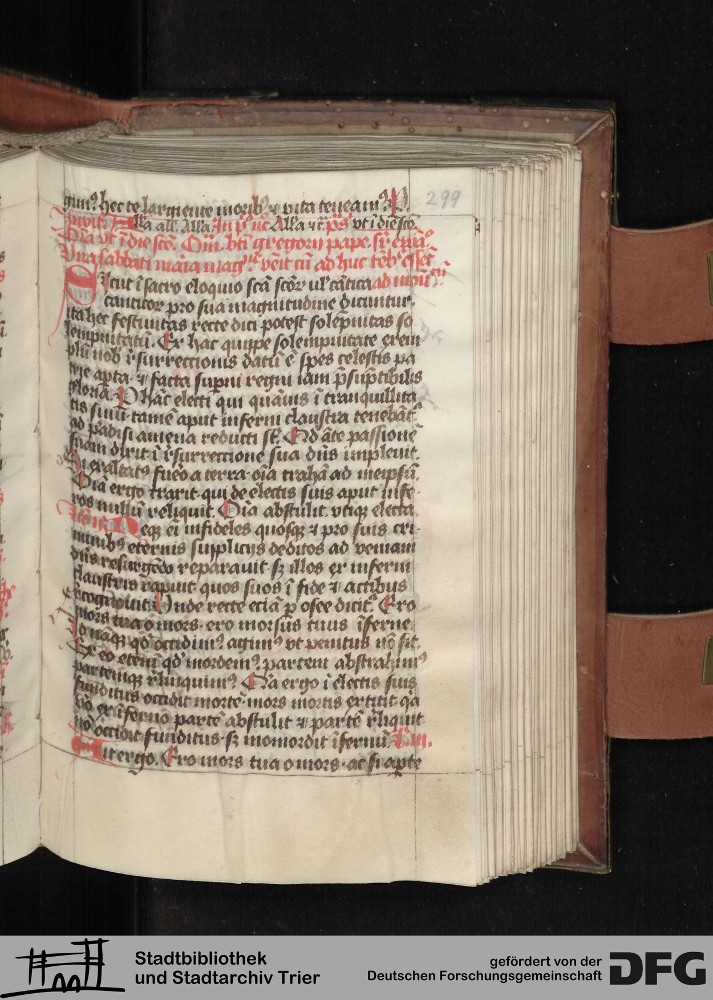 gim⁹ hec te largiente morib⁹ ⁊ vita teneam⁹ P.
Inuit. Alla all. Alla In p⁹ nc̄ Alla ⁊ c̄ ps̄ vt i die sco
299
Oīa vt i die scō. Om̄. bti gregorij pape.
Vna sabbati maria mag. vēit
Sicut i sacro eloquio scā scōr ul' cātica ad
canticor pro sua magnitudine dicuntur.
ita hec festiuitas recte dici potest solēpnitas so
lempnitatū. Ex hac quippe solempnitate exem
plū nob resurrectionis datū ē spes celestis pa
trie apta ⁊ facta supni regni iam psūptibilis
gloria. P hāc electi qui quāuis i tranquillita
tis sinu tamē aput inferni claustra tenebāt
ad padisi amena reducti st. Qd āte passionē
suam dixit i resurrectione sua dn̄s impleuit.
Si exaltat⁹ fuero a terra oīa trahā ad meipsū.
Oīa ergo traxit qui de electis suis aput infe
ros nullū reliquit. Oīa abstulit vtiqz electa
Neqz ei infideles quosqz ⁊ pro suis cri
minib⁹ eternis supplicijs deditos ad veniam
dn̄s resurgēdo reparauit sz illos ex inferni
claustris rapuit quos suos i fide ⁊ actibus
recognouit. Unde recte eciā p osee dicit. Ero
mors tua o mors. ero morsus tuus iferne.
Id nāqz qd occidim⁹ agim⁹ vt penitus nō sit.
Ex eo etenī qd mordem⁹ partem abstrahim⁹
partemqz relinquim⁹. Quia ergo i electis suis
funditus occidit mortē mors mortis extitit qa
vō ex iferno partē abstulit ⁊ partē reliquit
nō occidit funditus sz momordit ifernū.
Ait ergo. Ero mors tua o mors. ac si apte
Stadtbibliothek
und Stadtarchiv Trier
gefördert von der
Deutschen Forschungsgemeinschaft
DFG